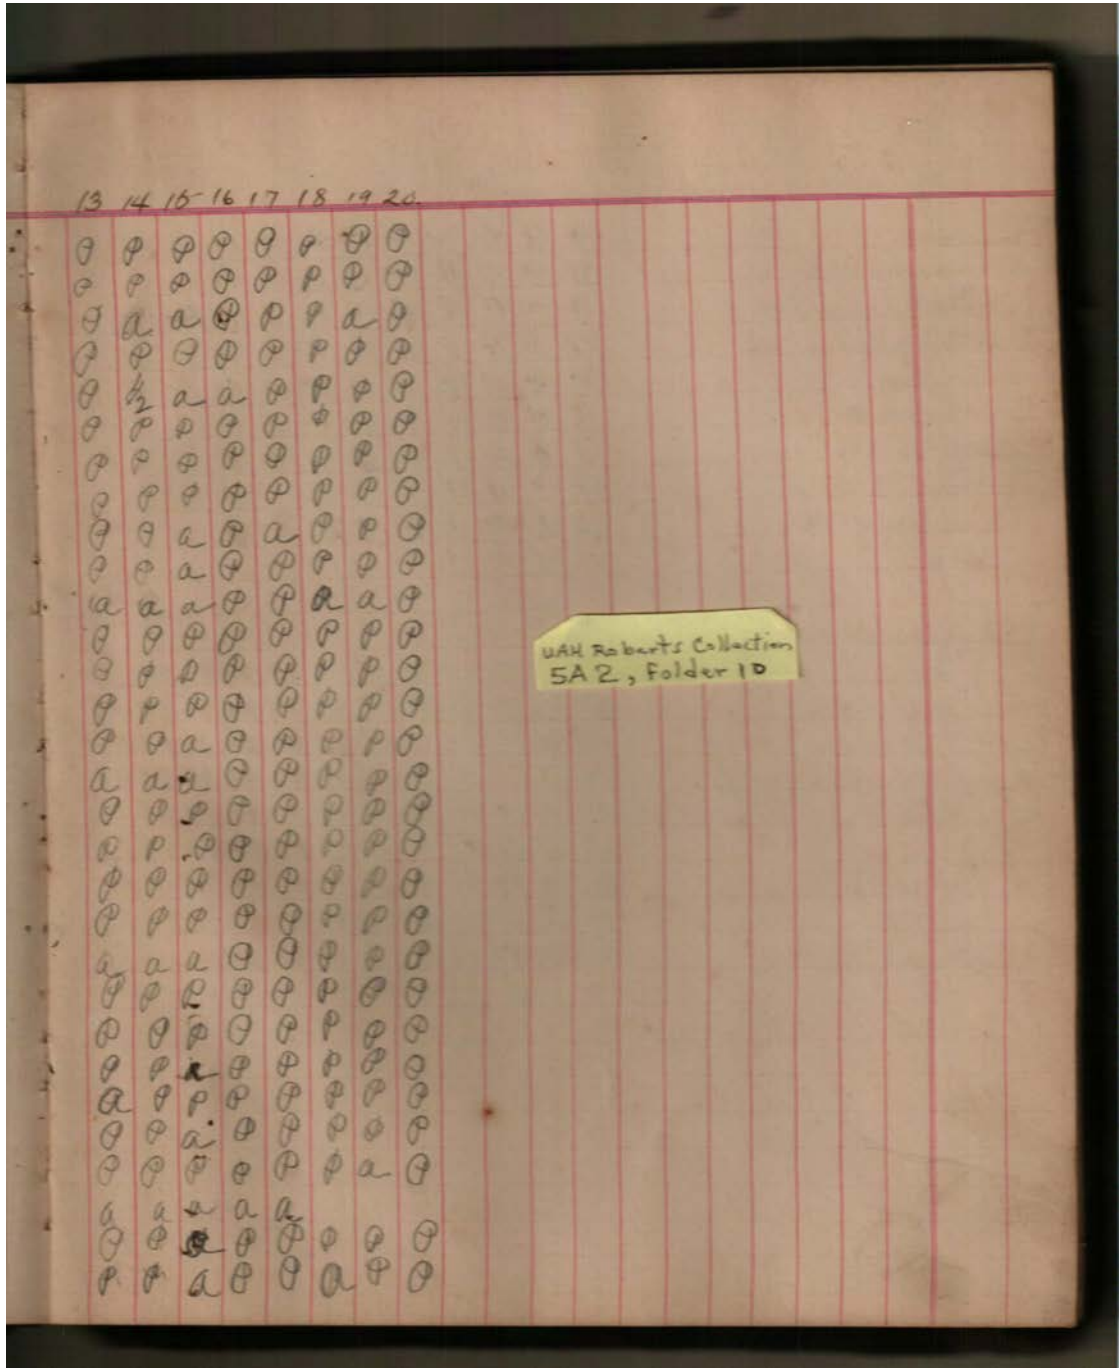 13 14 15 16 17 18 19 20.
P P P P P P P P
P P P P P P P P
P a a P P P a P
P P P P P P P P
P 1/2 a a P P P P
P P P P P P P P
P P P P P P P P
P P P P P P P P
P P a P a P P P
P P a P P P P P
a a a P P a a P
P P P P P P P P
P P P P P P P P
P P P P P P P P
P P a P P P P P
a a a P P P P P
P P P P P P P P
P P P P P P P P
P P P P P P P P
P P P P P P P P
a a a P P P P P
P P P P P P P P
P P P P P P P P
P P a P P P P P
a P P P P P P P
P P a P P P P P
P P P P P P a P
a a a a a
P P a P P P P P
P P a P P a P P
UAH Roberts Collection
5A2, Folder 10